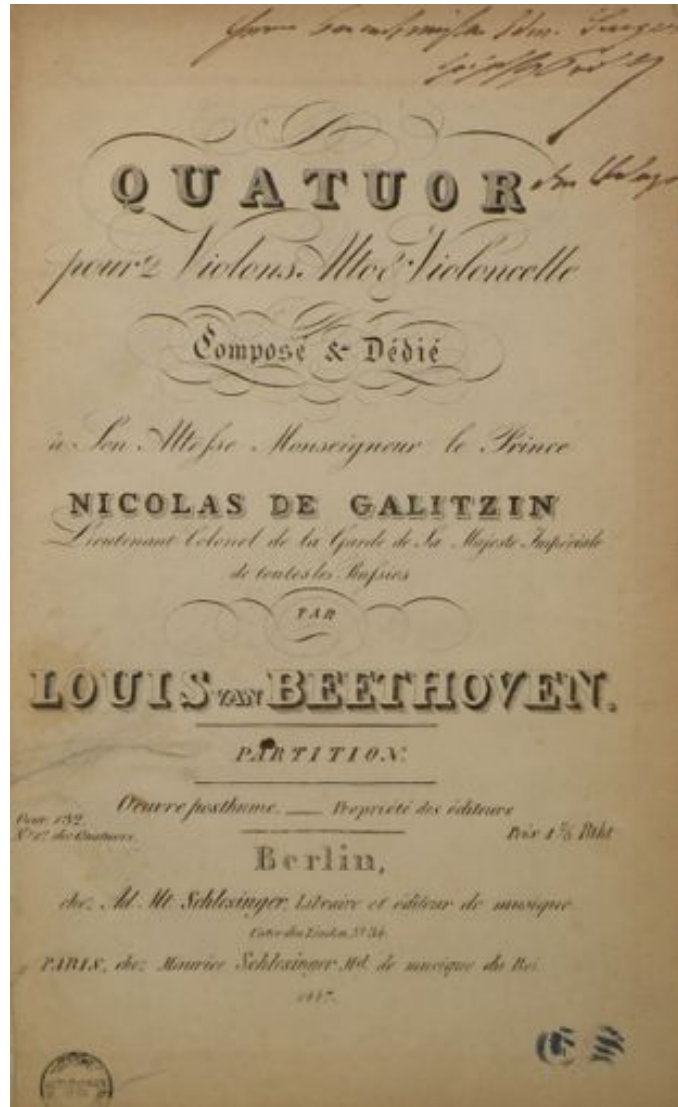 QUATUOR
pour 2 Violons, Alto & Violoncelle
Composé & Dédié
à Son Altesse Monseigneur le Prince
NICOLAS DE GALITZIN
Lieutenant Colonel de la Garde de Sa Majesté Impériale
de toutes les Russies
PAR
LOUIS VAN BEETHOVEN.
PARTITION.
Oeuvre posthume. — Propriété des éditeurs
Oeuv. 132.
des Quatuors.
Prix
Berlin,
chez Ad. Mt. Schlesinger, Libraire et éditeur de musique
Unter den Linden, No. 34.
PARIS, chez Maurice Schlesinger Md. de musique du Roi.